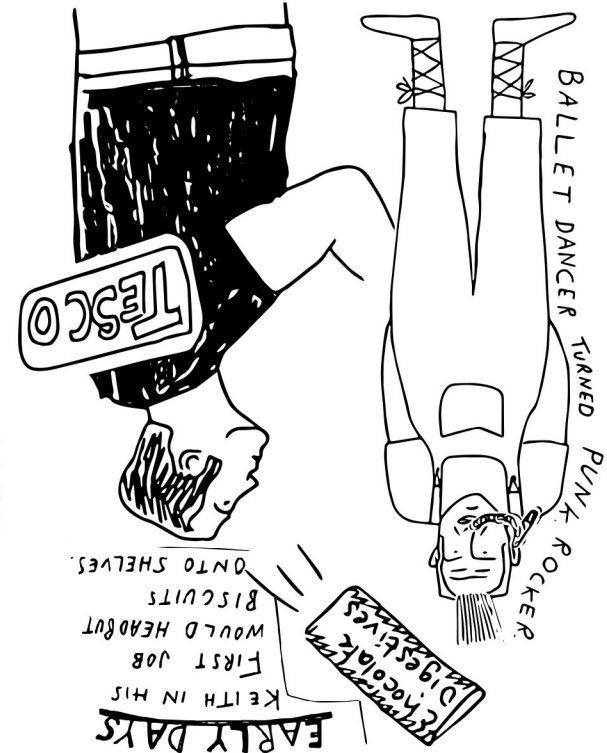 EARLY DAYS
KEITH IN HIS
FIRST JOB
WOULD HEADBUT
BISCUITS
ONTO SHELVES.
Chocolate
Digestives
TESCO
BALLET DANCER TURNED PUNK ROCKER